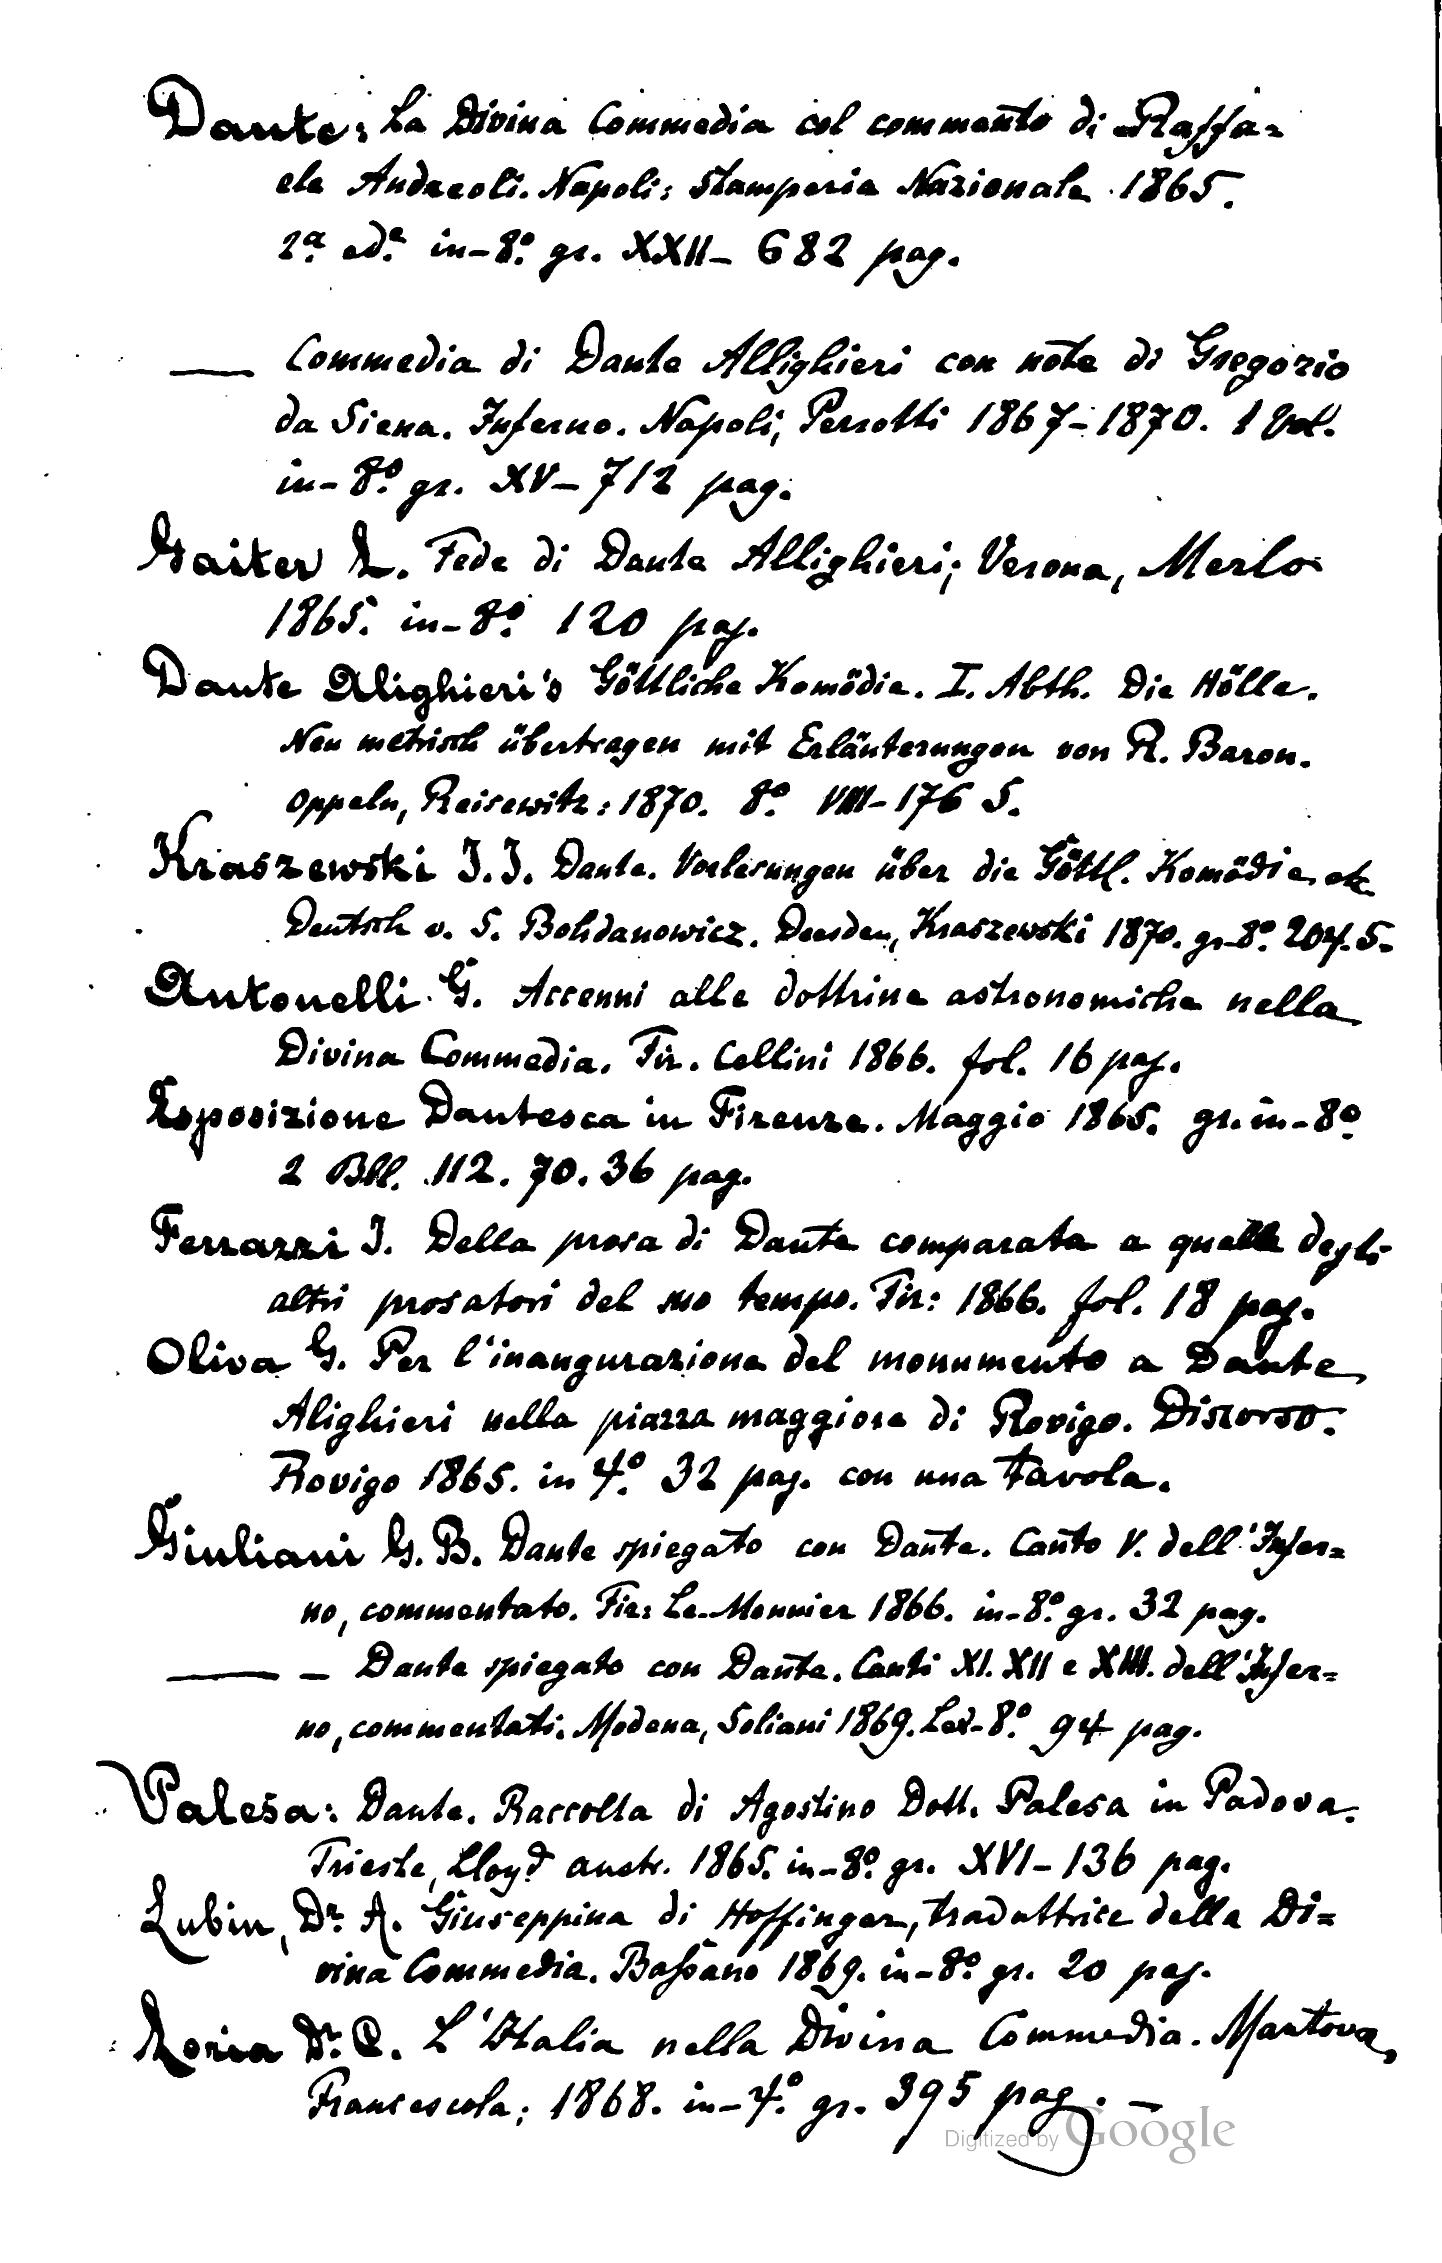 Dante: La Divina Commedia col commento di Raffa=
ele Andreoli. Napoli: Stamperia Nazionale 1865.
2ª. edᵉ. in-8º. gr. XXII- 682 pag.
—— Commedia di Dante Allighieri con note di Gregorio
da Siena. Inferno. Napoli, Perrotti 1867-1870. 1 Vol.
in-8º. gr. XV-712 pag.
Gaiter L. Fede di Dante Allighieri; Verona, Merlo
1865. in-8º. 120 pag.
Dante Alighieri's Göttliche Komödie. I. Abth. Die Hölle.
Neu metrisch übertragen mit Erläuterungen von R. Baron.
Oppeln, Reisewitz: 1870. 8º. VIII-176 S.
Kraszewski J. J. Dante. Vorlesungen über die Göttl. Komödie etc
Deutsch v. S. Bohdanowicz. Dresden, Kraszewski 1870. gr-8º. 204. S.
Antonelli G. Accenni alle dottrine astronomiche nella
Divina Commedia. Fir. Cellini 1866. fol. 16 pag.
Esposizione Dantesca in Firenze. Maggio 1865. gr. in-8º.
2 Bll. 112. 70. 36 pag.
Ferrazzi J. Della prosa di Dante comparata a quella degli
altri prosatori del suo tempo. Fir: 1866. fol. 18 pag.
Oliva G. Per l'inaugurazione del monumento a Dante
Alighieri nella piazza maggiore di Rovigo. Discorso.
Rovigo 1865. in 4º. 32 pag. con una tavola.
Giuliani G. B. Dante spiegato con Dante. Canto V. dell'Infer=
no, commentato. Fir: Le-Monnier 1866. in-8º. gr. 32 pag.
—— — Dante spiegato con Dante. Canti XI. XII e XIII. dell'Infer=
no, commentati. Modena, Soliani 1869. Lex-8º. 94 pag.
Palesa: Dante. Raccolta di Agostino Dott. Palesa in Padova.
Trieste, Lloyd austr. 1865. in-8º. gr. XVI-136 pag.
Lubin, Dr. A. Giuseppina di Hoffinger, traduttrice della Di=
vina Commedia. Bassano 1869. in-8º. gr. 20 pag.
Loria Dr. C. L'Italia nella Divina Commedia. Mantova,
Francescola; 1868. in-4º. gr. 395 pag. —
Digitized by Google